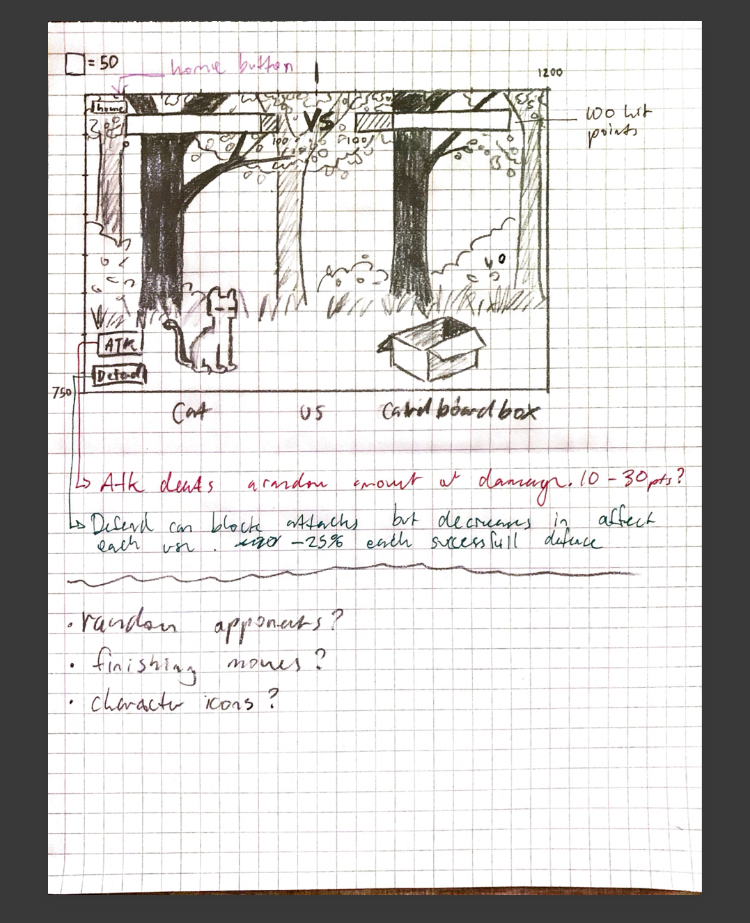 = 50
home button
1200
home
VS
100
100
100 hit
points
ATK
Defend
750
Cat VS Cardboard box
Atk deals a random amount of damage. 10 - 30 pts?
Defend can block attacks but decreases in affect
each use. -25% each successfull defence
• random apponents?
• finishing moves?
• character icons?